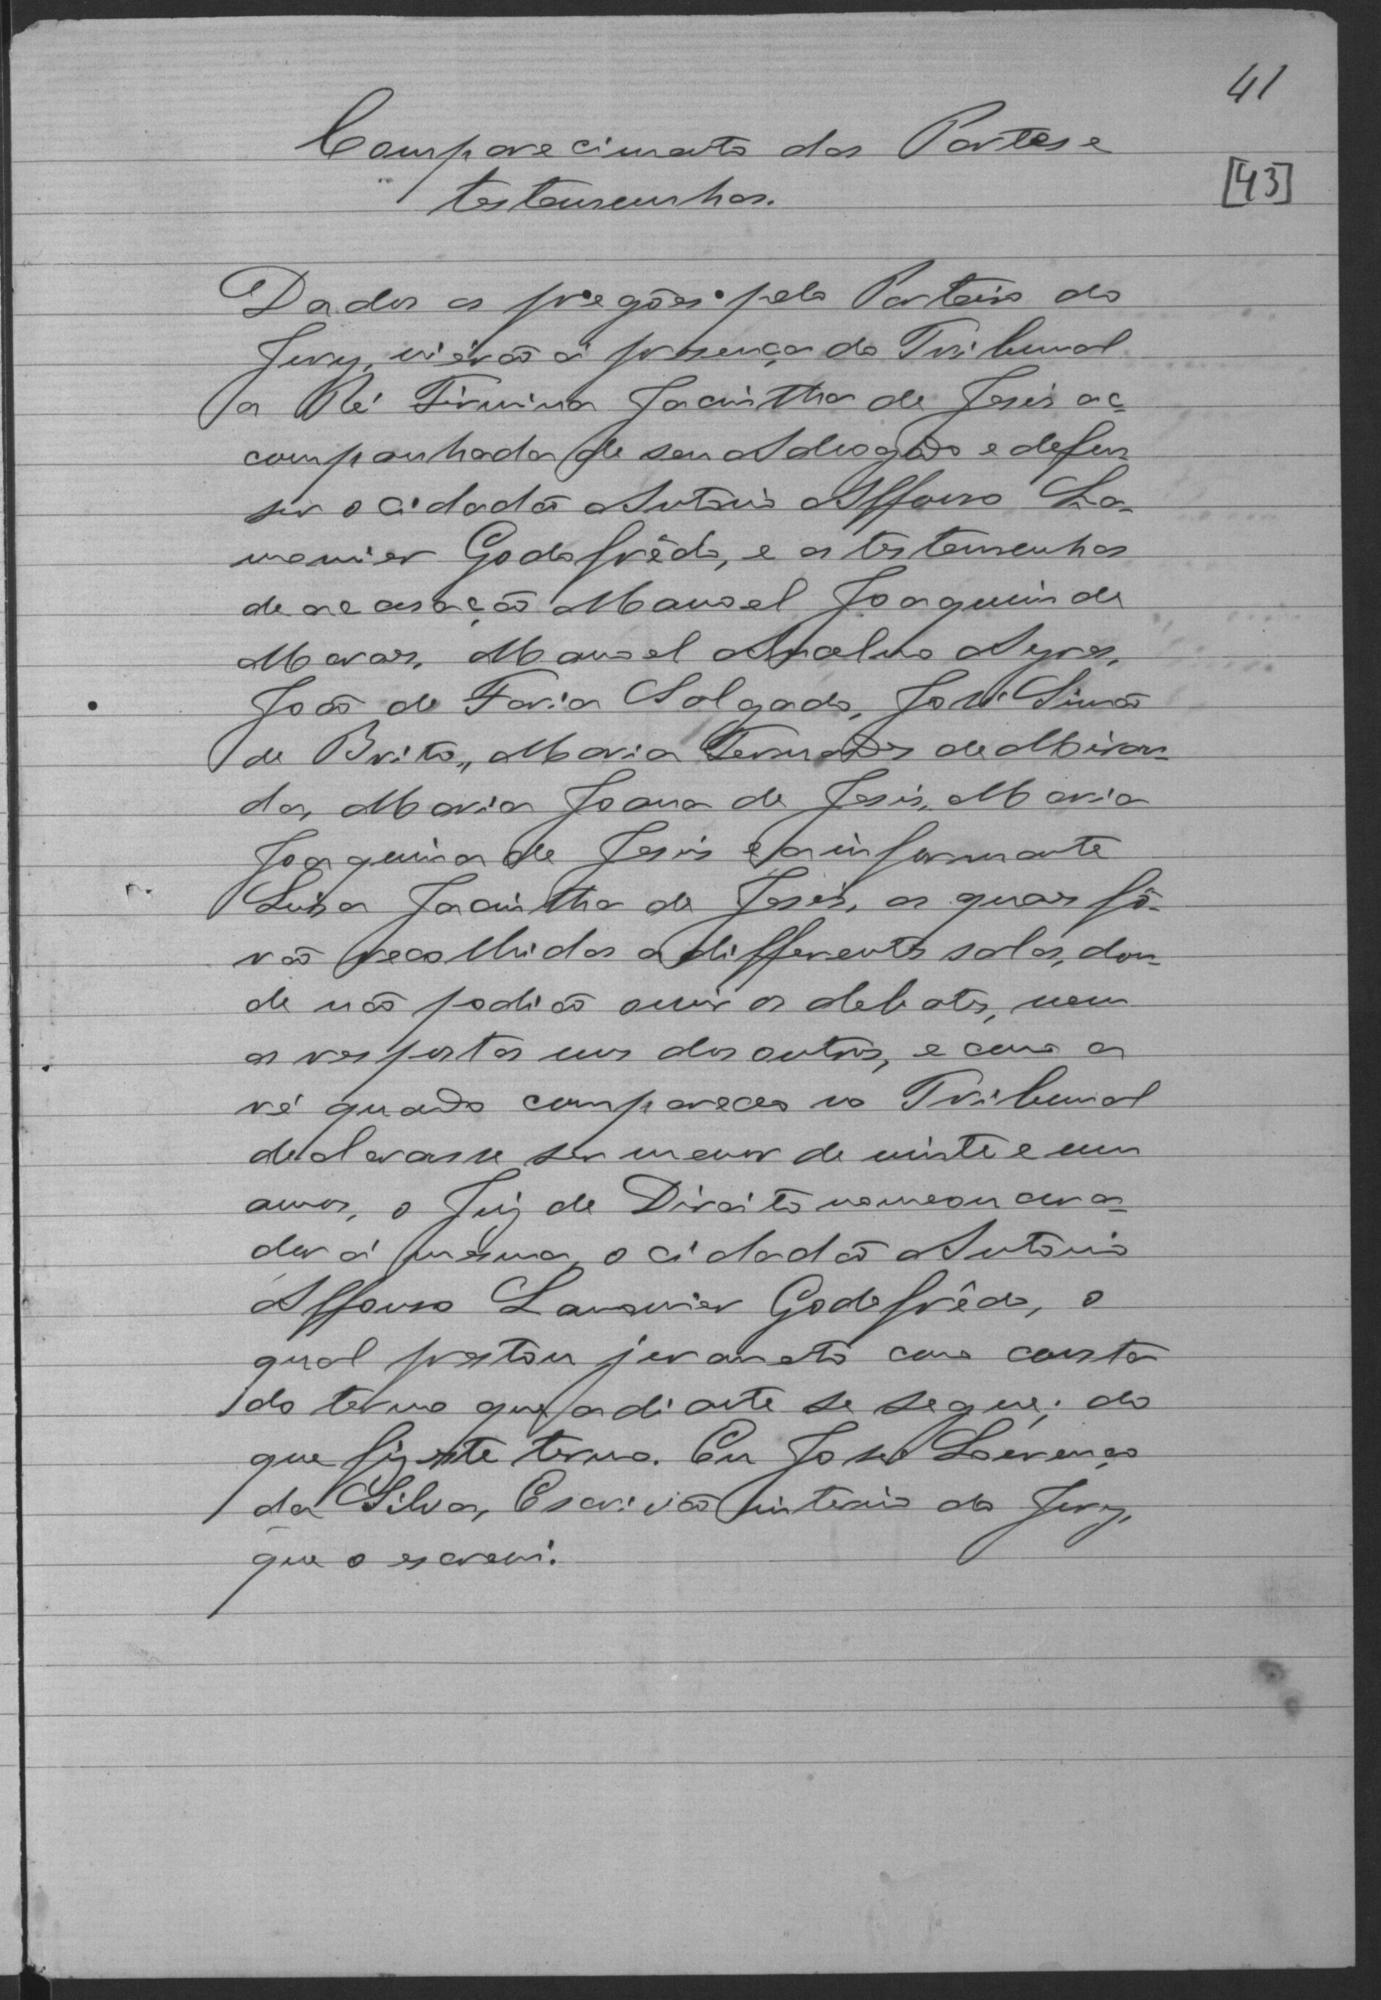 41
[43]
Comparecimento das Partes e
testemunhas.
Dados os pregões pelo Porteiro do
Jury, vierão á presença do Tribunal
a Ré Firmina Jacintha de Jesus ac-
companhada de seu Advogado e defen-
sor o cidadão Antonio Affonso La-
mounier Godofrêdo, e as testemunhas
de accusação Manoel Joaquim de
Moraes, Manoel Anselmo Ayres,
João de Faria Salgado, José Simão
de Brito, Maria Fernandes de Miran-
da, Maria Joana de Jesus, Maria
Joaquina de Jesus e a informante
Luisa Jacintha de Jesus, as quaes fô-
rão recolhidas a differentes salas, don-
de não podião ouvir os debates, nem
as respostas uns dos outros, e como a
ré quando compareceo no Tribunal
declarasse ser menor de vinte e um
annos, o Juiz de Direito nomeou cura-
dor á mesma, o cidadão Antonio
Affonso Lamounier Godofrêdo, o
qual prestou juramento como consta
do termo que adiante se segue; do
que fiz este termo. Eu José Lourenço
da Silva, Escrivão interino do Jury,
que o escrevi.